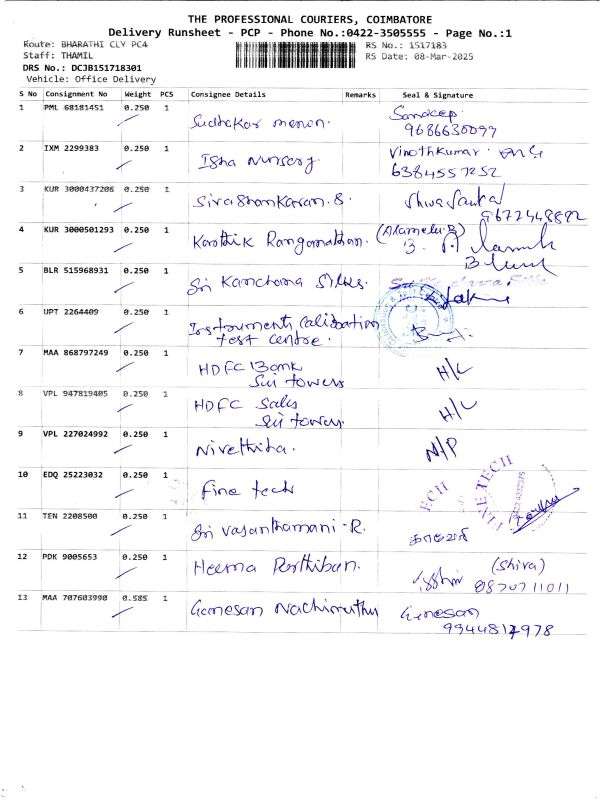 THE PROFESSIONAL COURIERS, COIMBATORE
Delivery Runsheet - PCP - Phone No.:0422-3505555 - Page No.:1
Route: BHARATHI CLY PC4
RS No.: 1517183
Staff: THAMIL
RS Date: 08-Mar-2025
DRS No.: DCJB151718301
Vehicle: Office Delivery
S No Consignment No Weight PCS Consignee Details Remarks Seal & Signature
1 PML 68181451 0.250 1 Sudhakar menon. Sandeep
9686630097
2 IXM 2299383 0.250 1 Isha Nursery Vinothkumar
6384557252
3 KUR 3000437206 0.250 1 Sivashankaran. S.
9677448892
4 KUR 3000501293 0.250 1 Karthik Ranganathan. (Alamelu.B)
5 BLR 515968931 0.250 1 Sri Kanchana Silks.
6 UPT 2264409 0.250 1 Instruments Calibration
test centre.
7 MAA 868797249 0.250 1 HDFC Bank H/L
Sri towers
8 VPL 947819405 0.250 1 HDFC Sales H/L
Sri towers.
9 VPL 227024992 0.250 1 Nivethita. N/P
10 EDQ 25223032 0.250 1 Fine tech ECH FINE TECH
11 TEN 2208500 0.250 1 Sri Vasanthamani R.
12 PDK 9005653 0.250 1 Heema Parthiban. (Shiva)
9870711011
13 MAA 707603990 0.585 1 Ganesan Nachimuthu Ganesan
9944817978